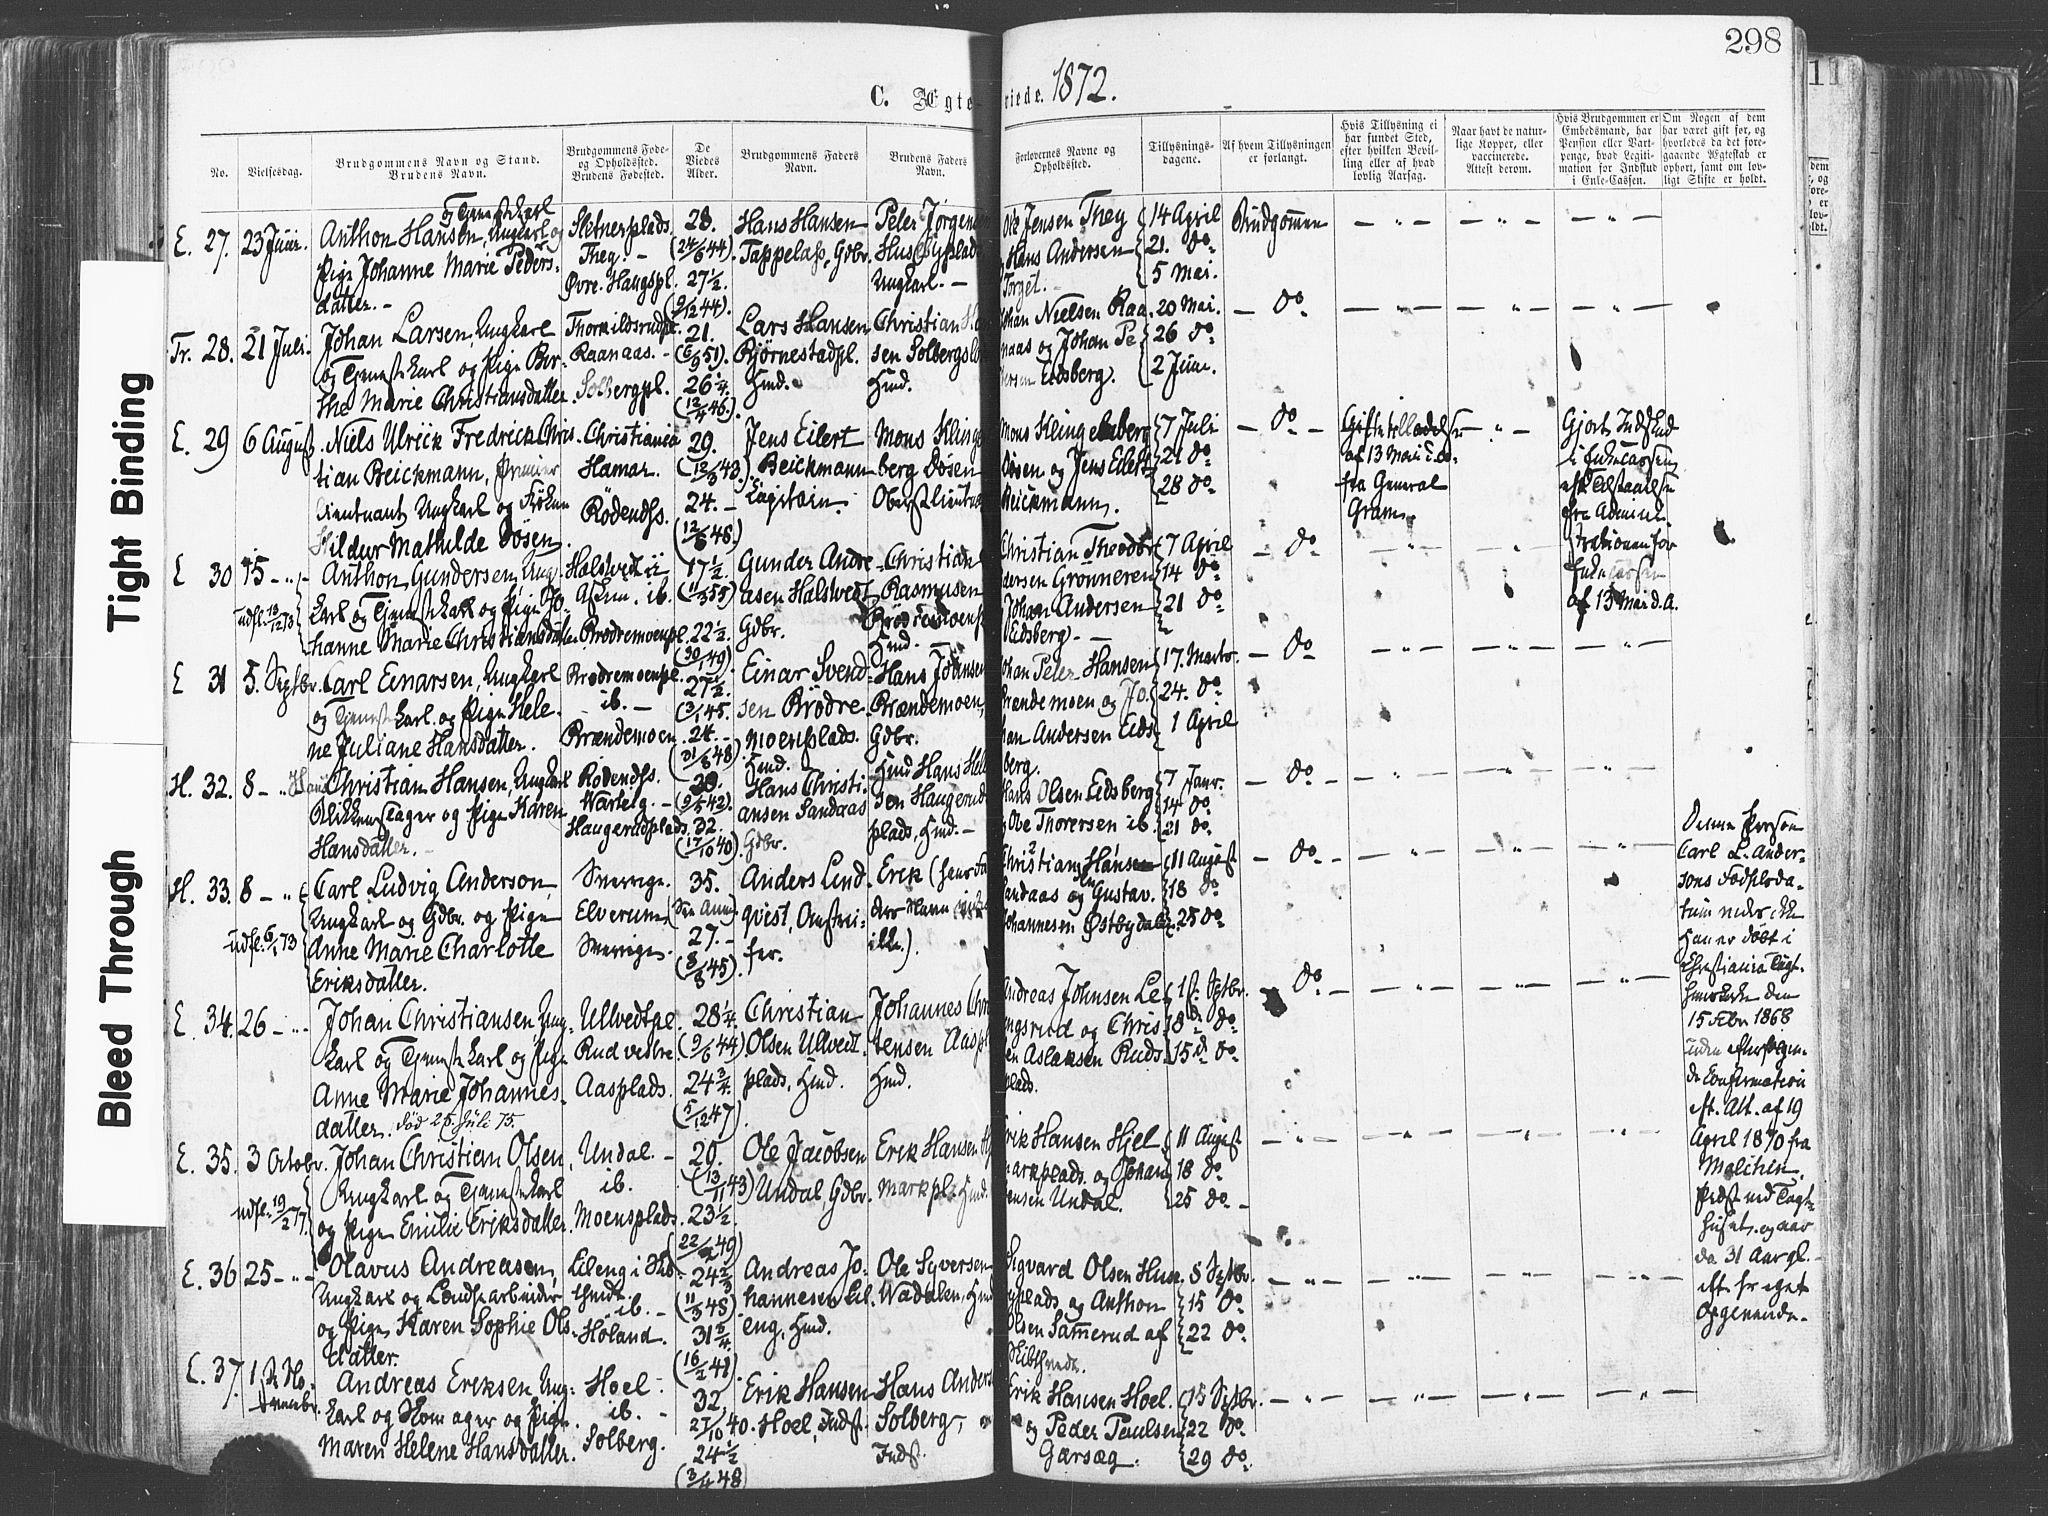 298
C. Ægteviede. 1872.
No.
Vielsesdag.
Brudgommens Navn og Stand.
Brudens Navn.
Brudgommens Føde-
og Opholdssted.
Brudens Fødested.
De
Viedes
Alder.
Brudgommens Faders
Navn.
Brudens Faders
Navn.
Forlovernes Navne og
Opholdssted.
Tillysnings-
dagene.
Af hvem Tillysningen
er forlangt.
Hvis Tillysning ei
har fundet Sted,
efter hvilken Bevil-
ling eller af hvad
lovlig Aarsag.
Naar havt de natur-
lige Kopper, eller
vaccinerede.
Attest derom.
Hvis Brudgommen er
Embedsmand, har
Pension eller Vart-
penge, hvad Legiti-
mation for Indskud
i Enke-Cassen.
Om Nogen af dem
har været gift før, og
hvorledes da det fore-
gaaende Ægteskab er
ophørt, samt om lov-
ligt Skifte er holdt.
Tight Binding
Bleed Through
E. 27. 23 Juni.
Anthon Hansen, Ungkarl og
Tjenestekarl
Pige Johanne Marie Peders-
datter.
Sletnerplads.
Theg.
Øvre Haugspl.
28.
(24/6 44)
27 1/2.
(9/12 44).
Hans Hansen
Tappelass, Gdbr.
Peter Jørgensen
Husebyplads
Ungkarl.
Ole Jensen Theg
Hans Andersen
Torget.
14 April
21. do
5 Mai.
Brudgommen
Tr. 28. 21 Juli.
Johan Larsen, Ungkarl
og Tjenestekarl og Pige Ber-
the Marie Christiansdatter.
Thormildsrudpl.
Raanaas.
Solbergpl.
21.
(6/9 51).
26 1/4.
(12/4 46).
Lars Hansen
Bjørnestadpl.
Hmd.
Christian Han
sen Solbergs
Hmd.
Johan Nielsen Raa
naas og Johan Pe
tersen Eidsberg.
20 Mai.
26 do
2 Juni.
do
E. 29 6 August.
Niels Ulrick Fredrick Chris-
tian Beickmann, Premier
lieutnant Ungkarl og Frøken
Hildur Mathilde Døsen
Christiania
Hamar.
Rødenæs.
29.
(12/3 43)
24.
(12/6 48.)
Jens Eilert
Beickmann
Capitain.
Mons Klinge
berg Døsen
Oberstlieutna
Mons Klingenberg
Døsen og Jens Eilert
Beickmann.
7 Juli
21 do
28 do
do
Giftetilladelse
af 13 Mai d.A.
fra General
Gram.
Gjort Indskud
i Enkecassen
eft. Tilstaaelse
fra Admini-
strationen for
Enkecassen
af 13 Mai d.A.
E 30 15
udfl. 13/12 73
Anthon Gundersen, Ung-
karl og Tjenestekarl og Pige Jo-
hanne Marie Christiansdatter
Halsvedt i
Askim. ib.
Brødremoenpl.
17 1/2.
(1/3 55)
22 1/2.
(30/1 49)
Gunder Andre-
asen Halsvedt
Gdbr.
Christian
Rasmusen
Brødremoenpl
Hmd.
Christian Theodor
Pedersen Grønneren
Johan Andersen
Eidsberg
7 April
14 do
21 do
do
E 31 5. Septbr.
Carl Einarsen, Ungkarl
og Tjenestekarl og Pige Hele-
ne Juliane Hansdatter.
Brødremoenpl.
ib.
Brændemoen
27 1/2.
(3/1 45.
24.
(31/8 48)
Einar Svend-
sen Brødre-
moenplads.
Hmd.
Hans Johnsen
Brændemoen,
Gdbr.
Johan Peter Hansen
Brændemoen og Jo-
han Andersen Eids
berg.
17. Marts.
24. do
1 April
do
H. 32. 8
Christian Hansen, Ungkarl
Blikkenslager og Pige Karen
Hansdatter.
Rødenæs.
Warteig.
Haugerudplads.
30.
(9/5 42)
32.
(17/10 40)
Hans Christi-
ansen Sandaas
Gdbr.
Hmd Hans Hel
sen Haugerud
plads, Hmd.
Hans Olsen Eidsberg
Ove Thorersen ib.
7 Janr.
14 do
21 do
do
H. 33. 8
udfl. 6/1 73
Carl Ludvig Anderson,
Ungkarl og Gdbr. og Pige
Anne Marie Charlotte
Eriksdatter.
Sverrige.
Elverum,
Sverrige.
35.
(See Anm.)
27.
(8/8 45).
Anders Lind-
qvist,
Erik (hans Fa
ders Navn
ille.)
Christian Hansen
Sandaas og Gustav
Johannesen Østbydalen.
11 August
18 do
25 do
do
Denne Person
Carl L. Ander-
sons Fødselsda-
tum vides ikke
Han er døbt i
Christiania Tugt-
huskirke den
15 Febr 1868
uden efterfølgen-
de Confirmation
eft. Att. af 19
April 1870 fra
Præst ved Tugt-
huset, og var
da 31 Aar gl.
eft. hs eget
Opgivende.
E. 34. 26
Johan Christiansen, Ung-
karl og Tjenestekarl og Pige
Anne Marie Johannes-
datter. Død 25. Juli 75.
Ullvedtpl.
Rud vestre.
Aasplads.
28 1/4.
(9/6 44)
24 3/4.
(5/12 47)
Christian
Olsen Ullvedt-
plads, Hmd.
Johannes Chr
tensen Aaspl
Hmd.
Andreas Johnsen Le
ngsrud og Chris-
en Aslaksen Ruds-
plads.
1st. Septbr.
8de do
15d do
do
E. 35. 3 Octobr.
udfl. 19/2 77
Johan Christian Olsen,
Ungkarl og Tjenestekarl
og Pige Emilie Eriksdatter.
Undal.
ib.
Moensplads.
29.
(13/11 43)
23 1/2.
Ole Jacobsen
Undal, Gdbr.
Erik Hansen Hj
markpl. Hmd.
Erik Hansen Hjel
markplads og Johan
Jensen Undal.
11 August
18 do
25 do
E. 36 25
Olavus Andreasen,
Ungkarl og Landsarbeider
og Pige Karen Sophie Ols-
datter.
Eileng i Skib-
thvedt.
ib.
Høland.
24 2/3
31 3/4
(16/2 41)
Andreas Jo-
hannesen Eil-
eng, Hmd.
Ole Syversen
Wadalen, Hmd
Sigvard Olsen Huse
byplads og Anthon
Olsen Sammerud af
Skibthvedt.
8 Septbr.
15 do
22 do
E. 37. 1ste No-
vembr.
Andreas Eriksen, Ung-
karl og Skomager og Pige
Maren Helene Hansdatter.
Hoel.
ib.
Solberg.
32.
27/10 40.
24 1/2
(3/4 48)
Erik Hansen
Hoel, Indst.
Hans Anders
Solberg,
Indst.
Erik Hansen Hoel.
og Peder Paulsen
Garsæg.
15 Septbr.
22 do
29 do